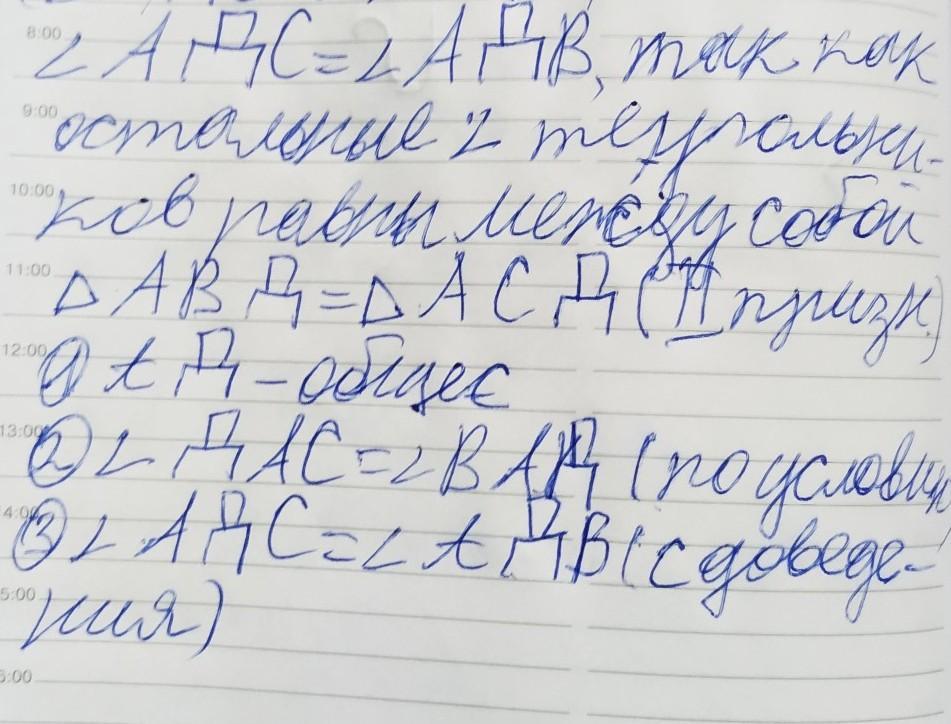 8:00
∠ АДС = ∠ АДВ, так как
9:00
остальные 2 треугольни-
10:00
ков равны между собой
11:00
△ АВД = △ АСД (II призн.)
12:00
① АД – общее
13:00
② ∠ ДАС = ∠ ВАД (по условию
4:00
③ ∠ АДС = ∠ АДВ (с доведе-
5:00
ния)
6:00